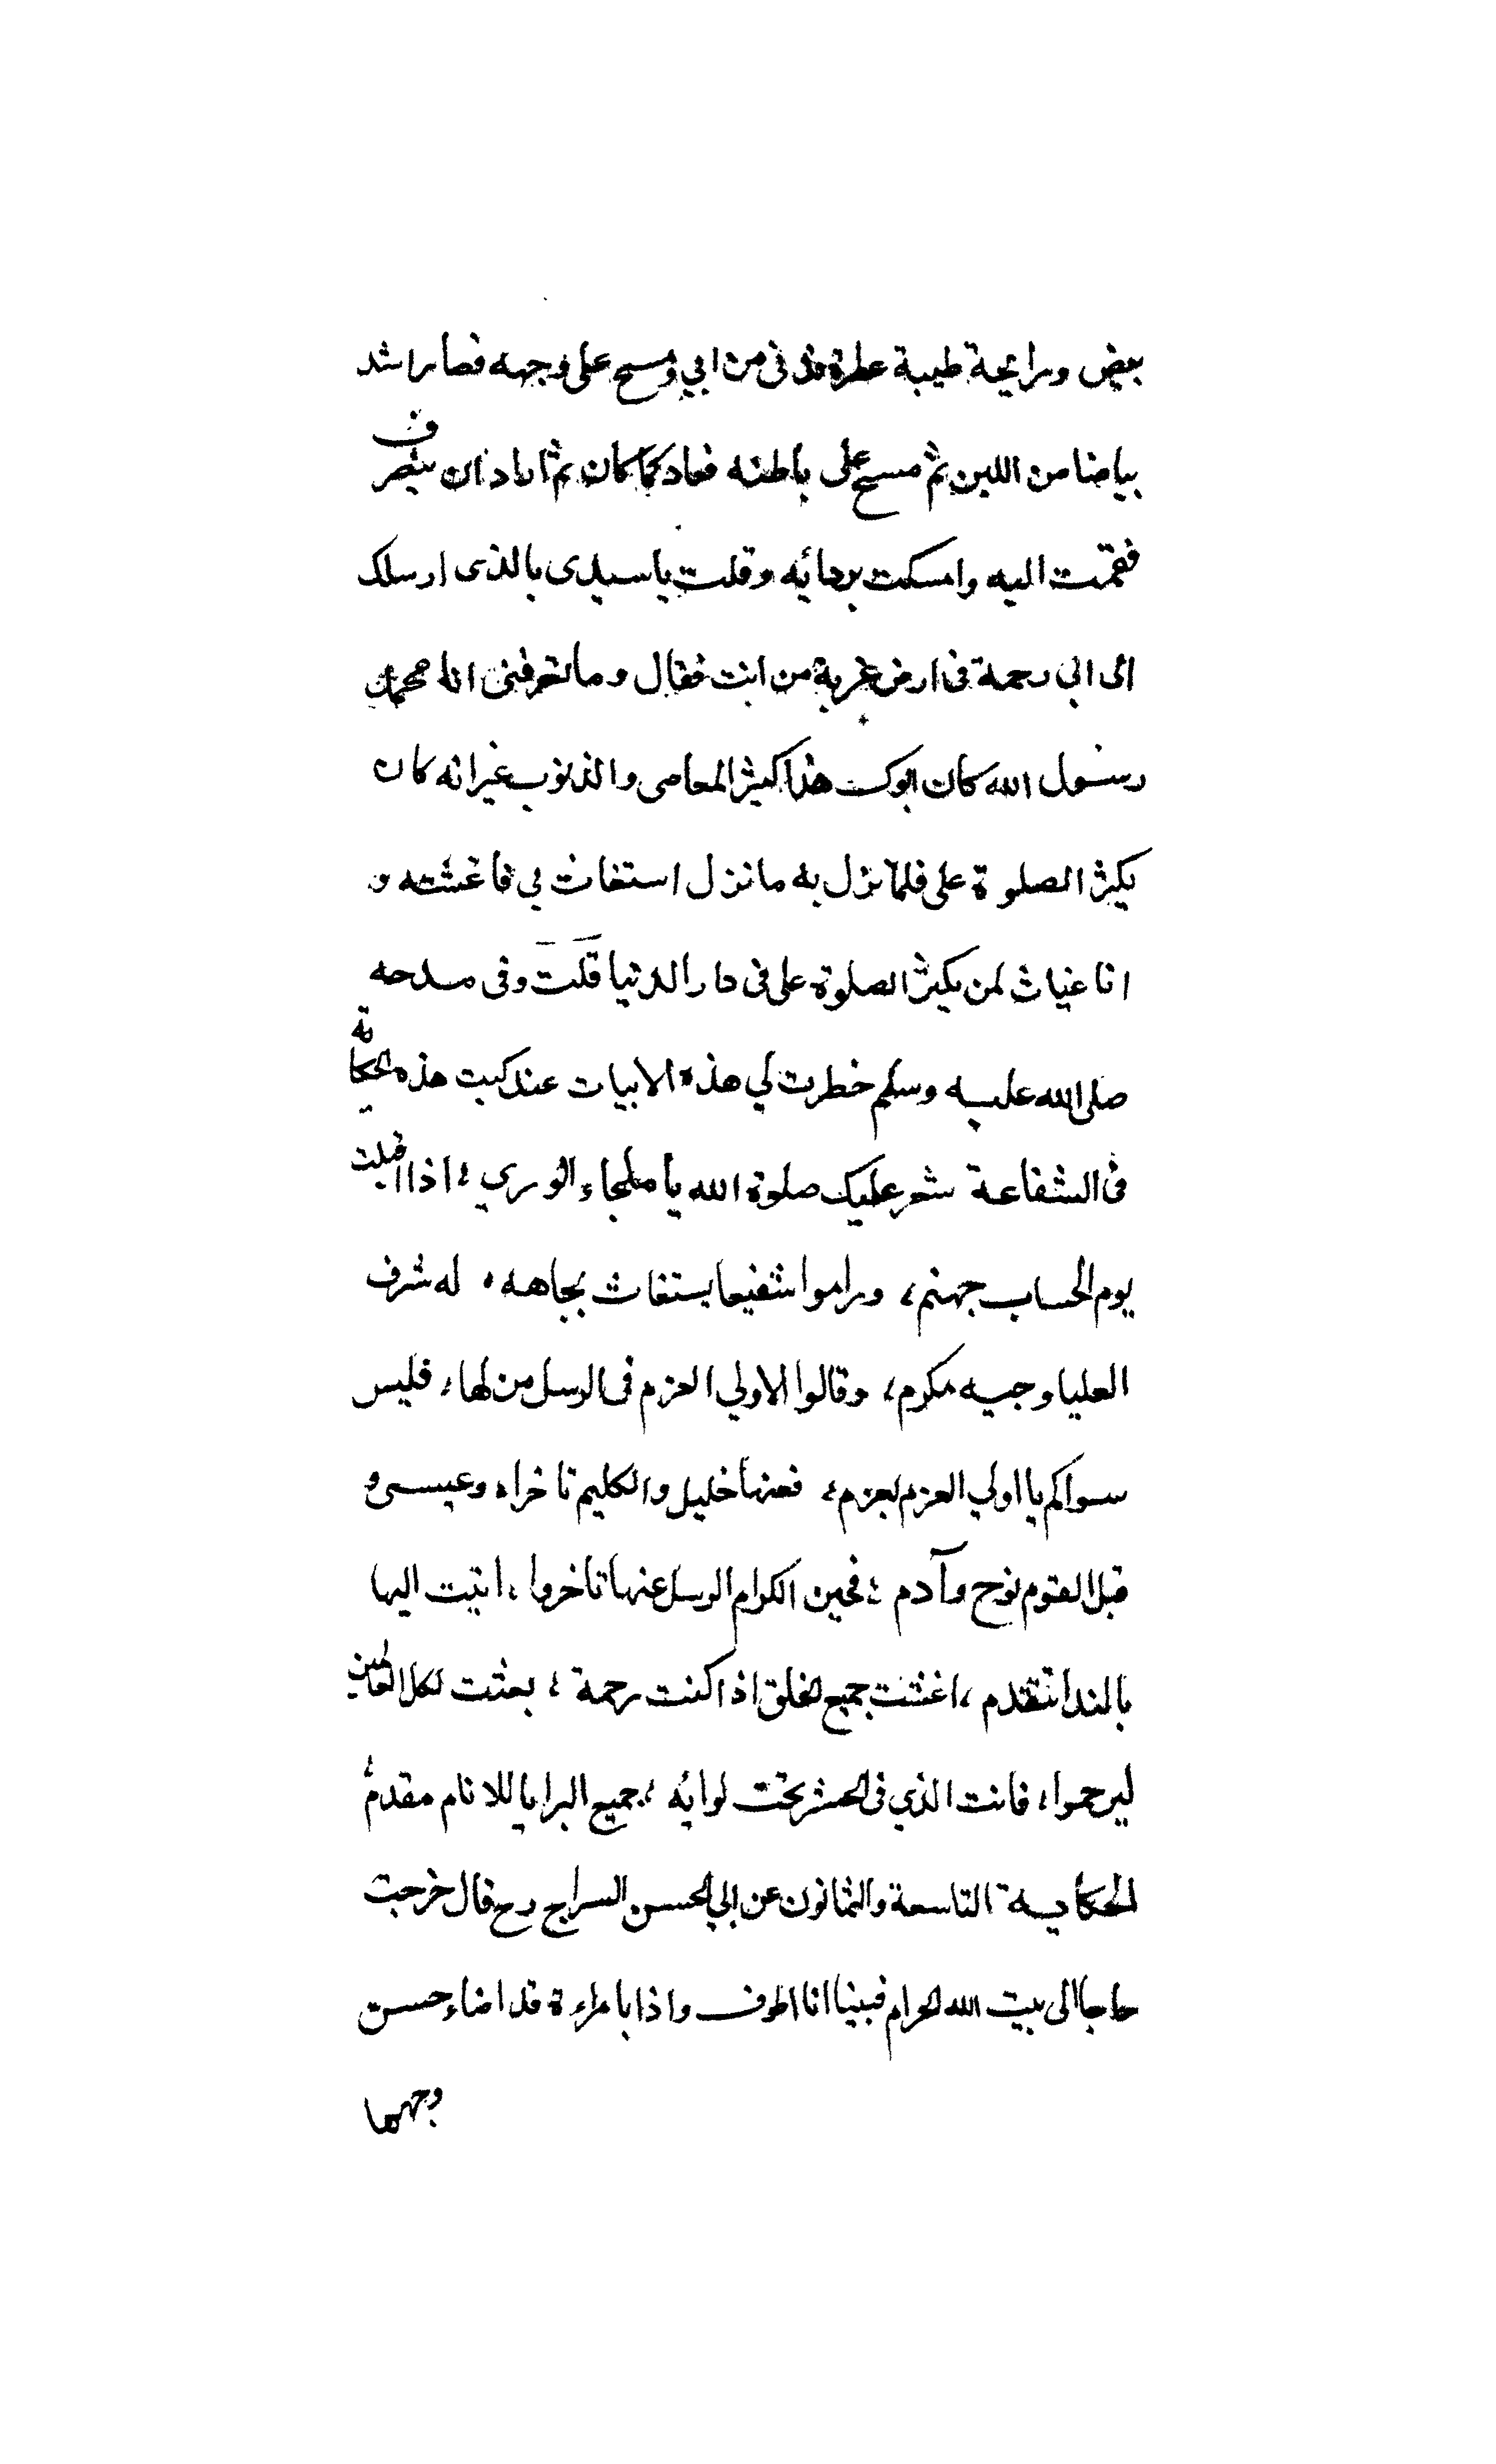 بعض ورايحة طيبة عطرة فدنى من ابي ومسح على وجهه فصار اشد
بياضا من اللبن ثم مسح على باطنه فعاد كما كان ثم اراد ان ينصرف
فقمت اليه وامسكت بردائه وقلت يا سيدى بالذى ارسلك
الى ابي رحمة فى ارض غربة من انت فقال وما تعرفنى انا محمد
رسول الله كان ابوك هذا كثير المعاصى والذنوب غير انه كان
يكثر الصلوة على فلما نزل به ما نزل استغاث بي فاغثته و
انا غياث لمن يكثر الصلوة على فى دار الدنيا قلت وفى مدحه
صلى الله عليه وسلم خطرت لي هذه الابيات عند كتبت هذه الحكاية
فى الشفاعة شعر عليك صلوة الله يا ملجاء الورى ؛ اذا اقبلت
يوم الحساب جهنم ، وراموا شفيعا يستغاث بجاهه ، له شرف
العليا وجيه مكرم ، وقالوا لاولي العزم فى الرسل من لها ، فليس
سواكم يا اولي العزم يعزم ، فعنها خليل والكليم تاخرا ، وعيسى و
قبل القوم نوح وآدم ؛ فحين الكرام الرسل عنها تاخروا ، اتيت اليها
بالندا تتقدم ، اغثت جميع الخلق اذ كنت رحمة ؛ بعثت لكل العالمين
ليرحموا ، فانت الذي فى الحشر تحت لوائه ؛ جميع البرايا للانام مقدم
الحكاية التاسعة والثمانون عن ابي الحسن السراج رح قال خرجت
حاجا الى بيت الله الحرام فبينا انا اطوف واذا بامراءة قد اضاء حسن
وجهها